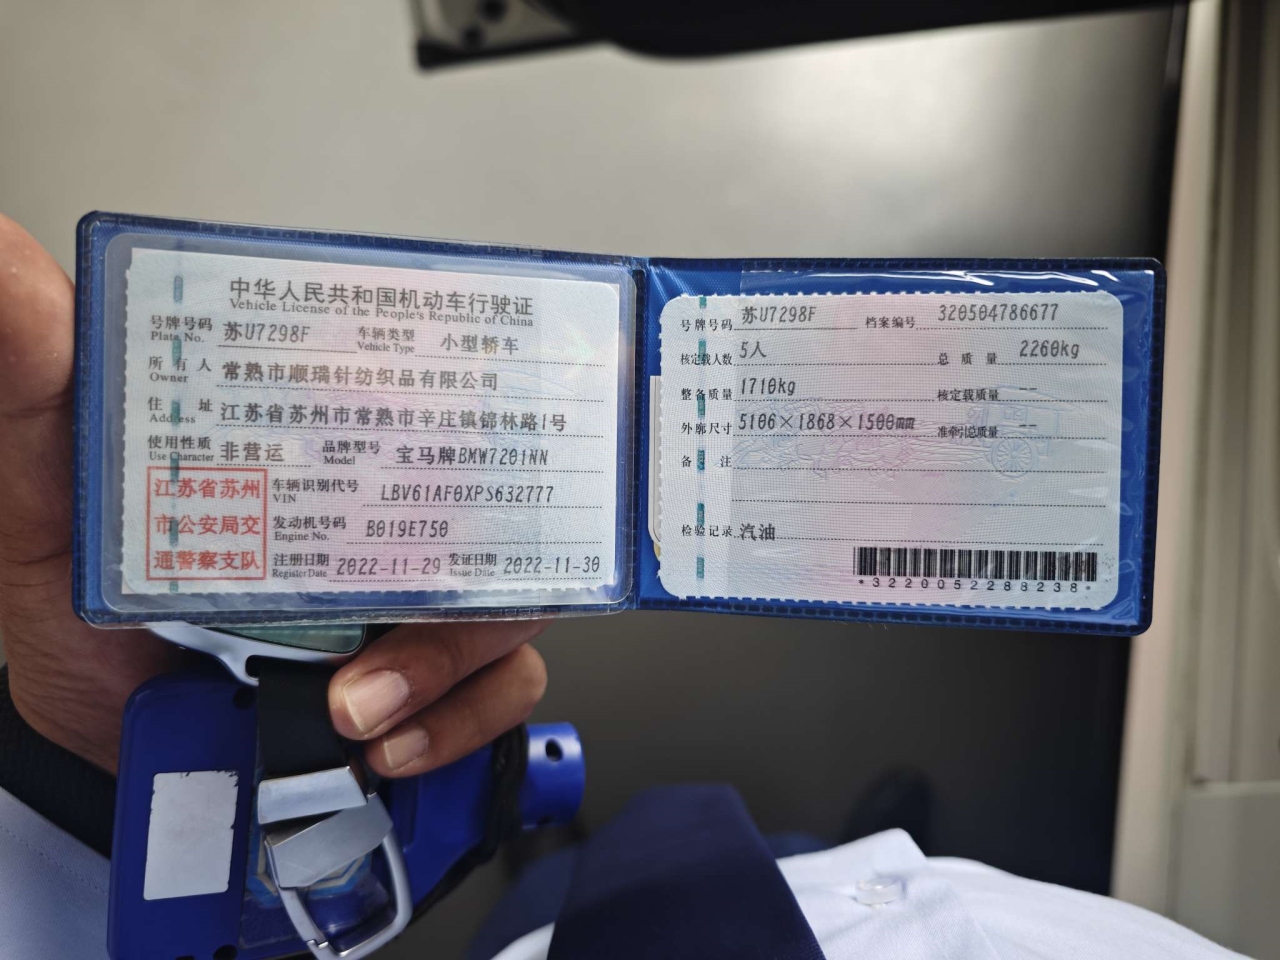 中华人民共和国机动车行驶证
Vehicle License of the People's Republic of China
号牌号码 苏U7298F 车辆类型 小型轿车
Plate No. Vehicle Type
所有人 常熟市顺瑞针纺织品有限公司
Owner
住址 江苏省苏州市常熟市辛庄镇锦林路1号
Address
使用性质 非营运 品牌型号 宝马牌BMW7201NN
Use Character Model
江苏省苏州
市公安局交
通警察支队
车辆识别代号 LBV61AF0XPS632777
VIN
发动机号码 B019E750
Engine No.
注册日期 2022-11-29 发证日期 2022-11-30
Register Date Issue Date
号牌号码 苏U7298F 档案编号 320504786677
核定载人数 5人 总质量 2260kg
整备质量 1710kg 核定载质量 --
外廓尺寸 5106×1868×1500mm 准牵引总质量 --
备注
检验记录 汽油
*3220052288238*